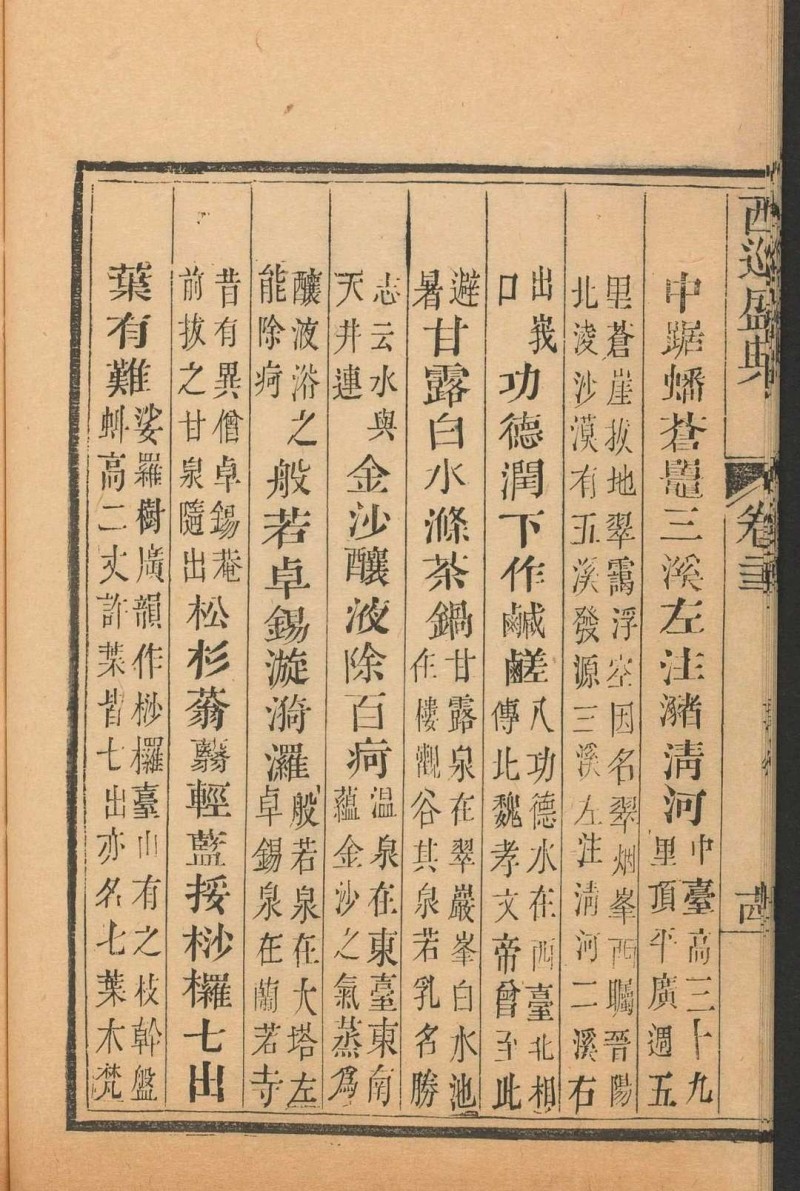 西巡盛典
卷三
十四
中踞蟠蒼鼉三溪左注瀦淸河
中臺高三十九
里頂平廣週五
里蒼崖拔地翠靄浮空因名翠烟峯西矚晉陽
北淩沙漠有五溪發源三溪左注淸河二溪右
出峩
口
功德潤下作鹹鹺
八功德水在西臺北相
傳北魏孝文帝曾至此
避
暑
甘露白水滌茶鍋
甘露泉在翠巖峯白水池
在樓觀谷其泉若乳名勝
志云水與
天井連
金沙釀液除百疴
温泉在東臺東南
蘊金沙之氣蒸爲
釀液浴之
能除疴
般若卓錫漩漪灑
般若泉在大塔左
卓錫泉在蘭若寺
昔有異僧卓錫菴
前拔之甘泉隨出
松杉蓊翳輕藍挼桫欏七出
葉有難
娑羅樹廣韻作桫欏臺山有之枝幹盤
蚪高二丈許葉皆七出亦名七葉木梵